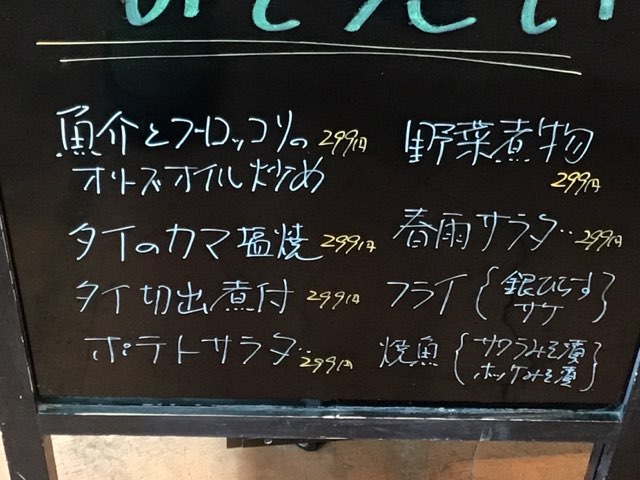 おそうざい
魚介とブロッコリーの 299円
オリーブオイル炒め
タイのカマ塩焼 299円
タイ切出煮付 299円
ポテトサラダ… 299円
野菜煮物
299円
春雨サラダ… 299円
フライ {銀ひらす
サケ}
焼魚 {サワラみそ漬
ホッケみそ漬}